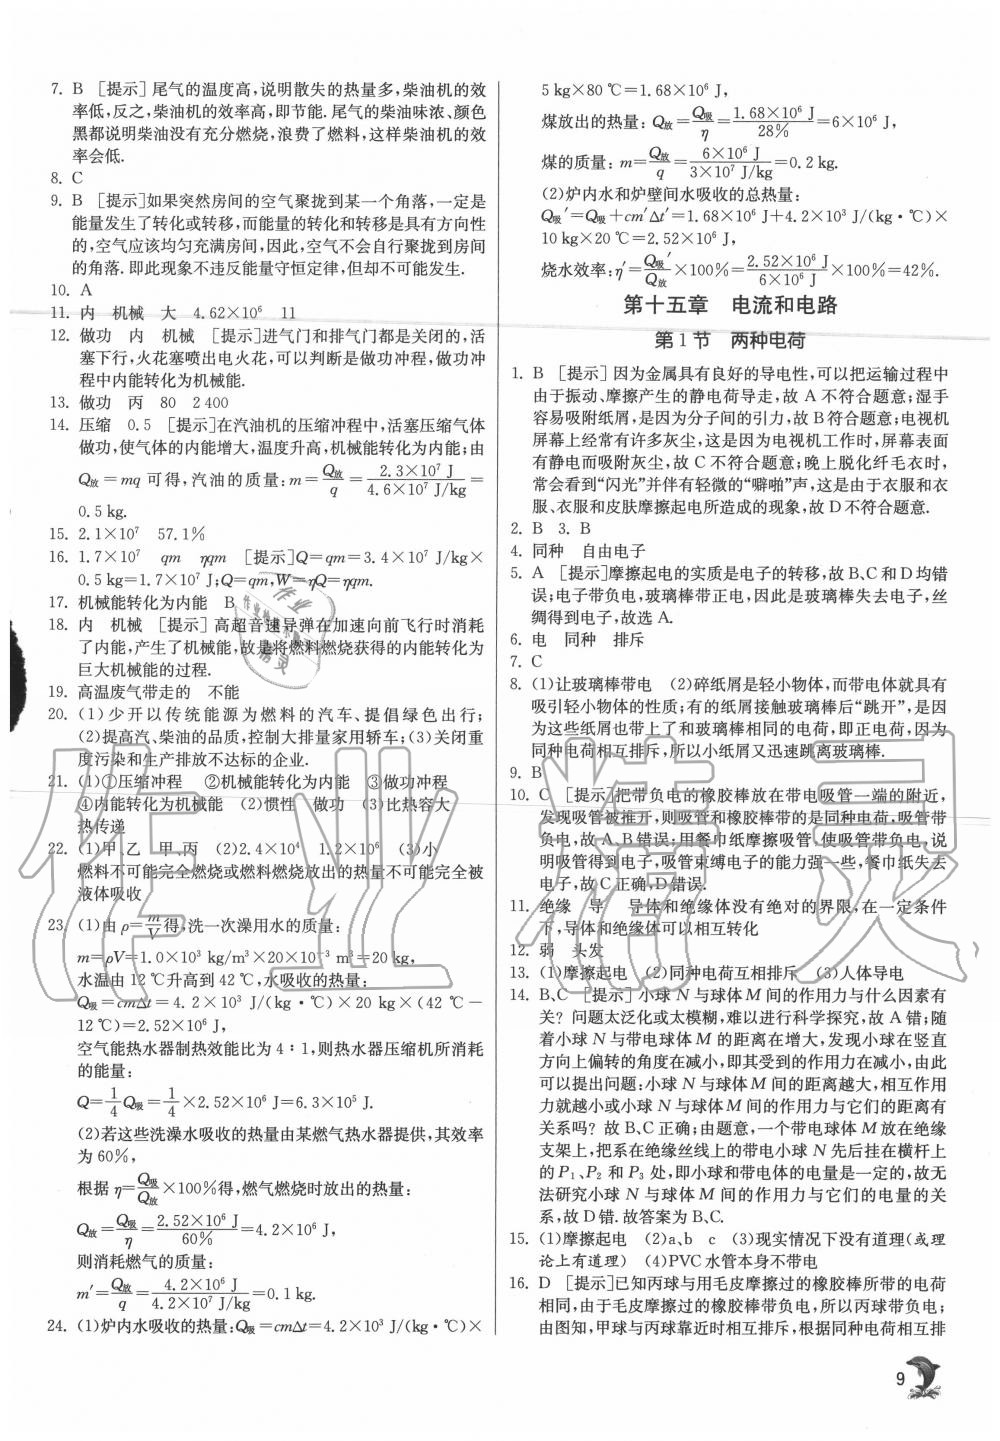 7. B [提示]尾气的温度高,说明散失的热量多,柴油机的效
率低,反之,柴油机的效率高,即节能.尾气的柴油味浓、颜色
黑都说明柴油没有充分燃烧,浪费了燃料,这样柴油机的效
率会低.
8. C
9. B [提示]如果突然房间的空气聚拢到某一个角落,一定是
能量发生了转化或转移,而能量的转化和转移是具有方向性
的,空气应该均匀充满房间,因此,空气不会自行聚拢到房间
的角落.即此现象不违反能量守恒定律,但却不可能发生.
10. A
11. 内 机械 大 4.62×10⁶ 11
12. 做功 内 机械 [提示]进气门和排气门都是关闭的,活
塞下行,火花塞喷出电火花,可以判断是做功冲程,做功冲
程中内能转化为机械能.
13. 做功 丙 80 2 400
14. 压缩 0.5 [提示]在汽油机的压缩冲程中,活塞压缩气体
做功,使气体的内能增大,温度升高,机械能转化为内能;由
Q放=mq 可得,汽油的质量:m=Q放/q=2.3×10⁷ J/4.6×10⁷ J/kg=
0.5 kg.
15. 2.1×10⁷ 57.1%
16. 1.7×10⁷ qm ηqm [提示]Q=qm=3.4×10⁷ J/kg×
0.5 kg=1.7×10⁷ J;Q=qm,W=ηQ=ηqm.
17. 机械能转化为内能 B
18. 内 机械 [提示]高超音速导弹在加速向前飞行时消耗
了内能,产生了机械能,故是将燃料燃烧获得的内能转化为
巨大机械能的过程.
19. 高温废气带走的 不能
20. (1)少开以传统能源为燃料的汽车、提倡绿色出行;
(2)提高汽、柴油的品质,控制大排量家用轿车;(3)关闭重
度污染和生产排放不达标的企业.
21. (1)①压缩冲程 ②机械能转化为内能 ③做功冲程
④内能转化为机械能 (2)惯性 做功 (3)比热容大
热传递
22. (1)甲、乙 甲、丙 (2)2.4×10⁴ 1.2×10⁶ (3)小
燃料不可能完全燃烧或燃料燃烧放出的热量不可能完全被
液体吸收
23. (1)由 ρ=m/V得,洗一次澡用水的质量:
m=ρV=1.0×10³ kg/m³×20×10⁻³ m³=20 kg,
水温由 12 ℃升高到 42 ℃,水吸收的热量:
Q吸=cmΔt=4.2×10³ J/(kg·℃)×20 kg×(42 ℃-
12 ℃)=2.52×10⁶ J,
空气能热水器制热效能比为 4∶1,则热水器压缩机所消耗
的能量:
Q=1/4Q吸=1/4×2.52×10⁶ J=6.3×10⁵ J.
(2)若这些洗澡水吸收的热量由某燃气热水器提供,其效率
为 60%,
根据 η=Q吸/Q放×100%得,燃气燃烧时放出的热量:
Q放=Q吸/η=2.52×10⁶ J/60%=4.2×10⁶ J,
则消耗燃气的质量:
m′=Q放/q=4.2×10⁶ J/4.2×10⁷ J/kg=0.1 kg.
24. (1)炉内水吸收的热量:Q吸=cmΔt=4.2×10³ J/(kg·℃)×
5 kg×80 ℃=1.68×10⁶ J,
煤放出的热量:Q放=Q吸/η=1.68×10⁶ J/28%=6×10⁶ J,
煤的质量:m=Q放/q=6×10⁶ J/3×10⁷ J/kg=0.2 kg.
(2)炉内水和炉壁间水吸收的总热量:
Q吸′=Q吸+cm′Δt′=1.68×10⁶ J+4.2×10³ J/(kg·℃)×
10 kg×20 ℃=2.52×10⁶ J,
烧水效率:η′=Q吸′/Q放×100%=2.52×10⁶ J/6×10⁶ J×100%=42%.
第十五章 电流和电路
第 1 节 两种电荷
1. B [提示]因为金属具有良好的导电性,可以把运输过程中
由于振动、摩擦产生的静电荷导走,故 A 不符合题意;湿手
容易吸附纸屑,是因为分子间的引力,故 B 符合题意;电视机
屏幕上经常有许多灰尘,这是因为电视机工作时,屏幕表面
有静电而吸附灰尘,故 C 不符合题意;晚上脱化纤毛衣时,
常会看到“闪光”并伴有轻微的“噼啪”声,这是由于衣服和衣
服、衣服和皮肤摩擦起电所造成的现象,故 D 不符合题意.
2. B 3. B
4. 同种 自由电子
5. A [提示]摩擦起电的实质是电子的转移,故 B、C 和 D 均错
误;电子带负电,玻璃棒带正电,因此是玻璃棒失去电子,丝
绸得到电子,故选 A.
6. 电 同种 排斥
7. C
8. (1)让玻璃棒带电 (2)碎纸屑是轻小物体,而带电体就具有
吸引轻小物体的性质;有的纸屑接触玻璃棒后“跳开”,是因
为这些纸屑也带上了和玻璃棒相同的电荷,即正电荷,因为
同种电荷相互排斥,所以小纸屑又迅速跳离玻璃棒.
9. B
10. C [提示]把带负电的橡胶棒放在带电吸管一端的附近,
发现吸管被推开,则吸管和橡胶棒带的是同种电荷,吸管带
负电,故 A、B 错误;用餐巾纸摩擦吸管,使吸管带负电,说
明吸管得到电子,吸管束缚电子的能力强一些,餐巾纸失去
电子,故 C 正确,D 错误.
11. 绝缘 导 导体和绝缘体没有绝对的界限,在一定条件
下,导体和绝缘体可以相互转化
12. 弱 头发
13. (1)摩擦起电 (2)同种电荷互相排斥 (3)人体导电
14. B、C [提示]小球 N 与球体 M 间的作用力与什么因素有
关?问题太泛化或太模糊,难以进行科学探究,故 A 错;随
着小球 N 与带电球体 M 的距离在增大,发现小球在竖直
方向上偏转的角度在减小,即其受到的作用力在减小,由此
可以提出问题:小球 N 与球体 M 间的距离越大,相互作用
力就越小或小球 N 与球体 M 间的作用力与它们的距离有
关系吗?故 B、C 正确;由题意,一个带电球体 M 放在绝缘
支架上,把系在绝缘丝线上的带电小球 N 先后挂在横杆上
的 P₁、P₂ 和 P₃ 处,即小球和带电体的电量是一定的,故无
法研究小球 N 与球体 M 间的作用力与它们的电量的关
系,故 D 错.故答案为 B、C.
15. (1)摩擦起电 (2)a、b c (3)现实情况下没有道理(或理
论上有道理) (4)PVC 水管本身不带电
16. D [提示]已知丙球与用毛皮摩擦过的橡胶棒所带的电荷
相同,由于毛皮摩擦过的橡胶棒带负电,所以丙球带负电;
由图知,甲球与丙球靠近时相互排斥,根据同种电荷相互排
9
作业精灵